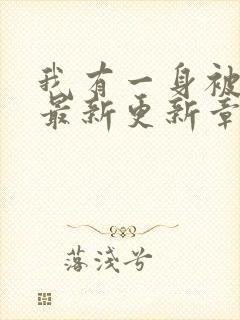 我有一身被
最新更新章
落淺兮